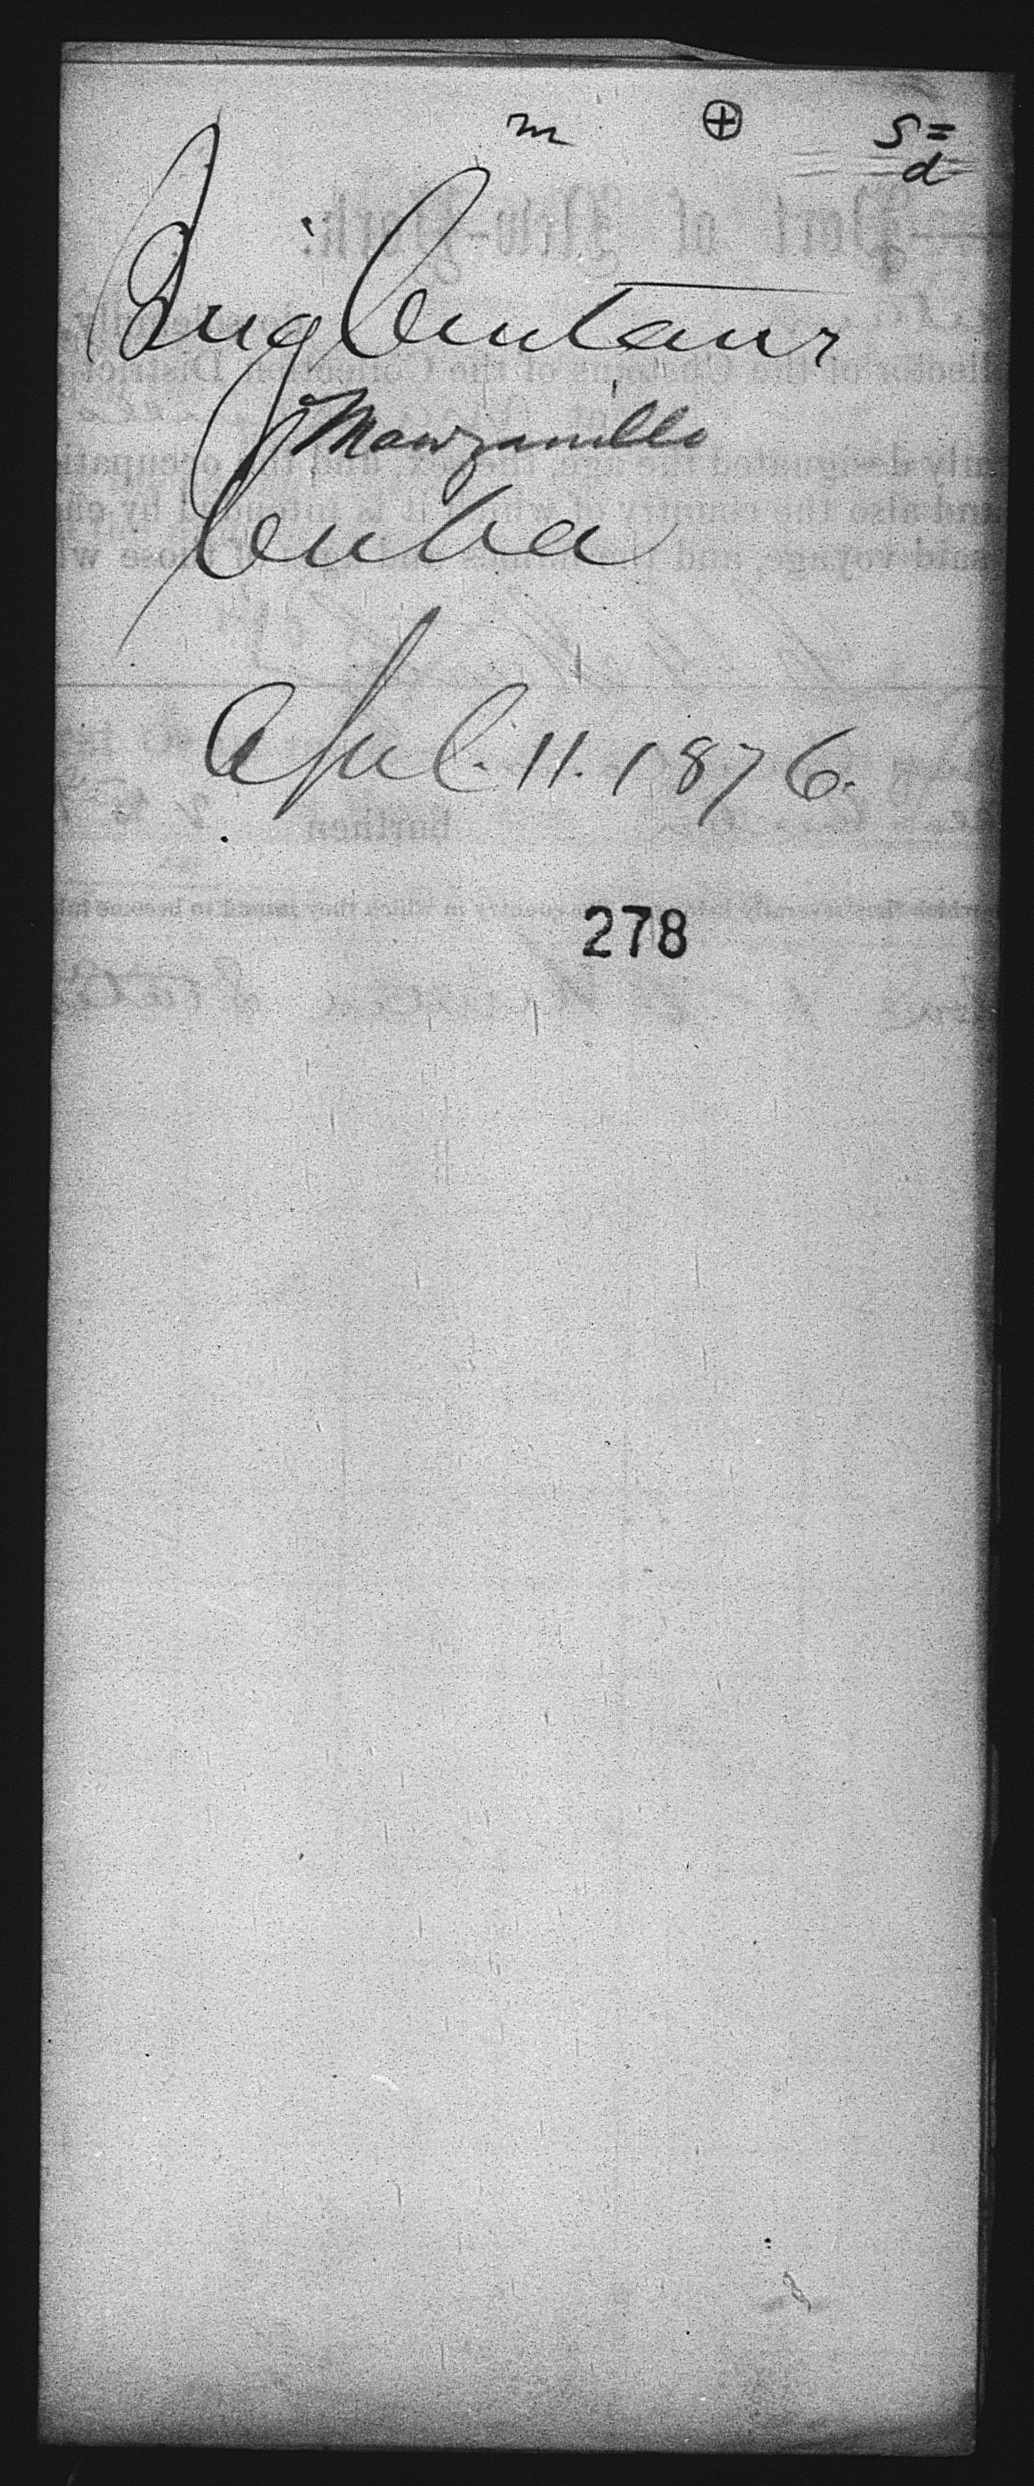 m ⊕ S=
d
Brig Centaur
Manzanillo
Cuba
April. 11. 1876.
278